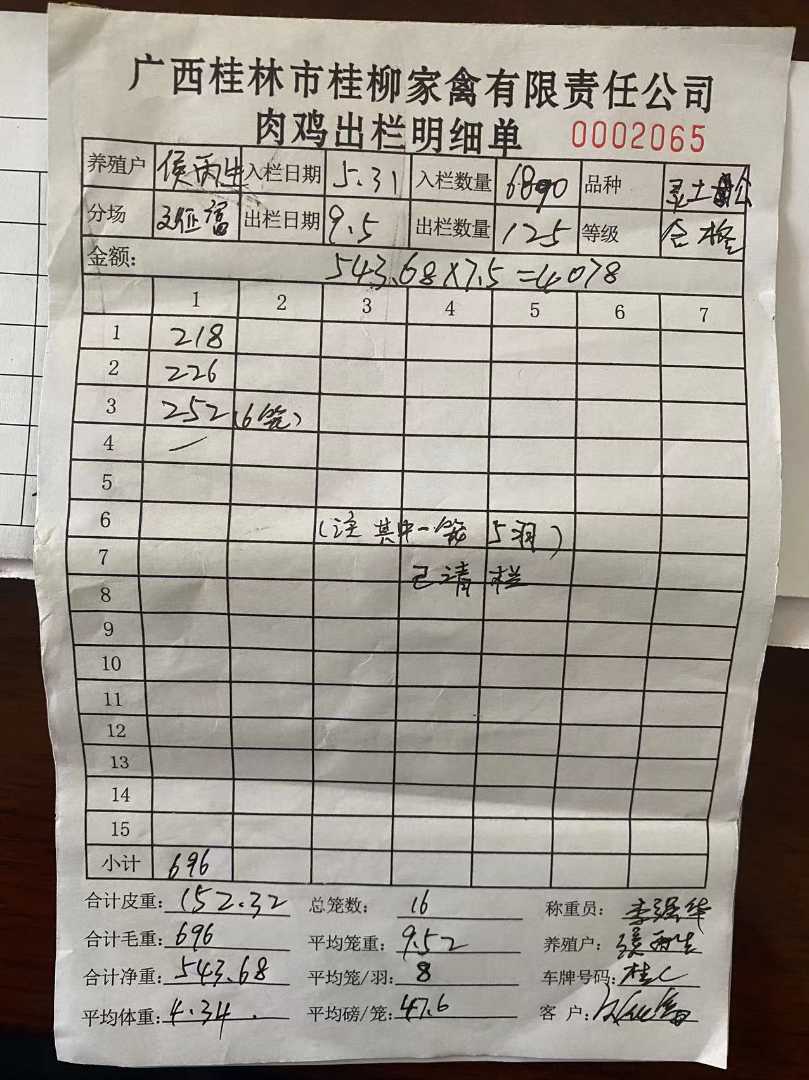 广西桂林市桂柳家禽有限责任公司
肉鸡出栏明细单 0002065
养殖户 侯丙生 入栏日期 5.31 入栏数量 6890 品种
分场 出栏日期 9.5 出栏数量 125 等级 合格
金额: 543.68×7.5=4078
1 2 3 4 5 6 7
1 218
2 226
3 252(6笼)
4 一
5
6 (注其中一笼5羽)
7 已清栏
8
9
10
11
12
13
14
15
小计 696
合计皮重: 152.32 总笼数: 16 称重员:
合计毛重: 696 平均笼重: 9.52 养殖户: 侯丙生
合计净重: 543.68 平均笼/羽: 8 车牌号码: 桂C
平均体重: 4.34 平均磅/笼: 47.6 客 户: